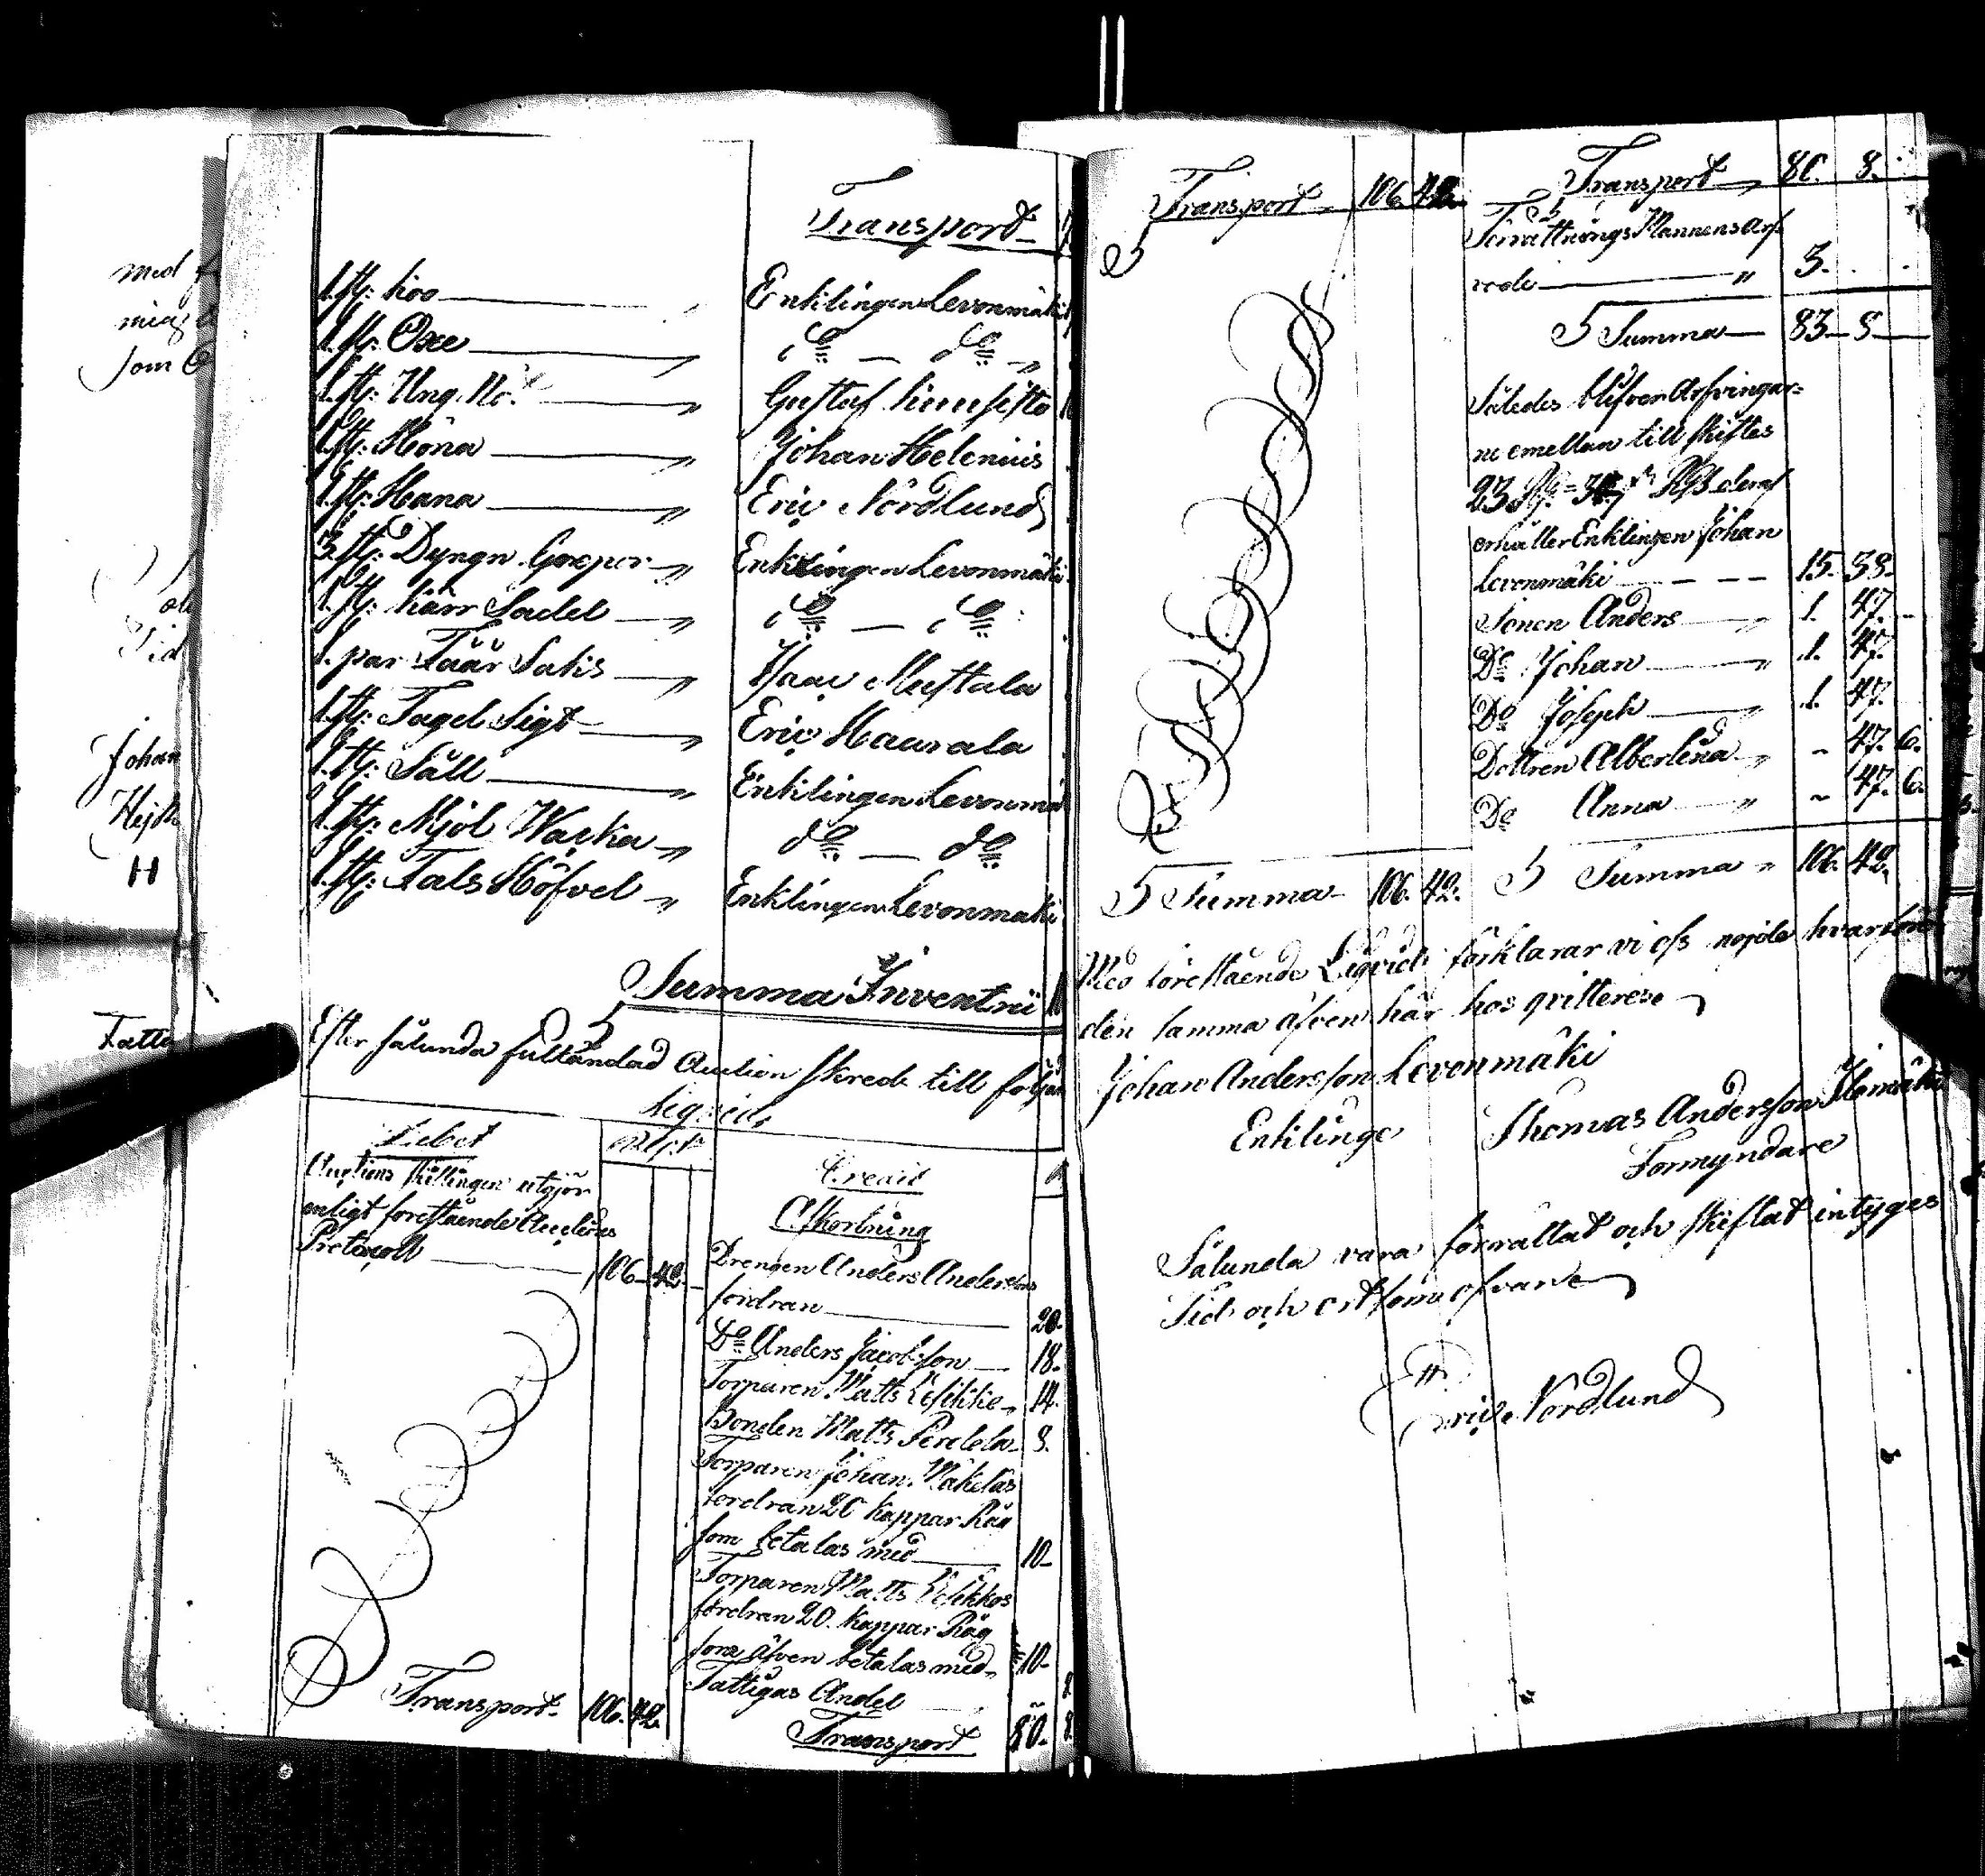 Transport
1. st: Koo Enklingen Levonmäki
1. st: Oxe do — do
1. st: Ung No: Gustaf
1. st: Höna Johan Helenius
1. st: Hana Eric Nordlund
3. st: Dyngn Greper Enklingen Levonmäki
1. st: Kärr Sadel do — do
1. par Täär Isaac Mustala
1. st: Tagel Sigt Eric Haurala
1. st: Såll Enklingen Levonmä
1. st: Mjöl Wacka do — do
1. st: Tals Höfvel Enklingen Levonmäki
Summa Inventrii
Efter sålunda fulländad Auction skreds till följan
Liqvid,
Debet
Auctions skillingen utgjör
enligt föreståènde Auctions
Protocoll 106. 42.
Transport 106. 42.
Credit
Afkortning
Drengen Anders Anderssons
fordran 20.
Do Anders Jacobsson 18.
Torparen Matts 14.
Bonden Matts Perdela 8.
Torparen Johan Mäkeläs
fordran 20 Kappar Råg
som betalas med 10
Torparen Matts
fordran 20. Kappar Råg
som äfven betalas med 10
Fattigas Andel 8
Transport 80. 8
med
mig
som
Johan
Hejk
H
Transport 106. 42.
Transport 80. 8.
Förrättnings Mannens Arf
vode 3.
S Summa 83 8
Således blifver Arfvingar=
ne emellan till skiftes
23 Rub
erhåller Enklingen Johan
Levonmäki 15. 38.
Sonen Anders 1. 47.
Do Johan 1. 47.
Do Joseph 1. 47.
Dottren Albertina 47. 6.
Do Anna 47. 6.
S Summa 106. 42.
S Summa 106. 42.
Med föreståènde Liqvid förklarar vi oss nöjde hvarföre
den samma äfven här hos qvitteres
Johan Andersson Levonmäki
Enklinge
Thomas Andersson
Förmyndare
Sålunda vara förrättat och skiftat intyges
Tid och ort som ofvan
Eric Nordlund